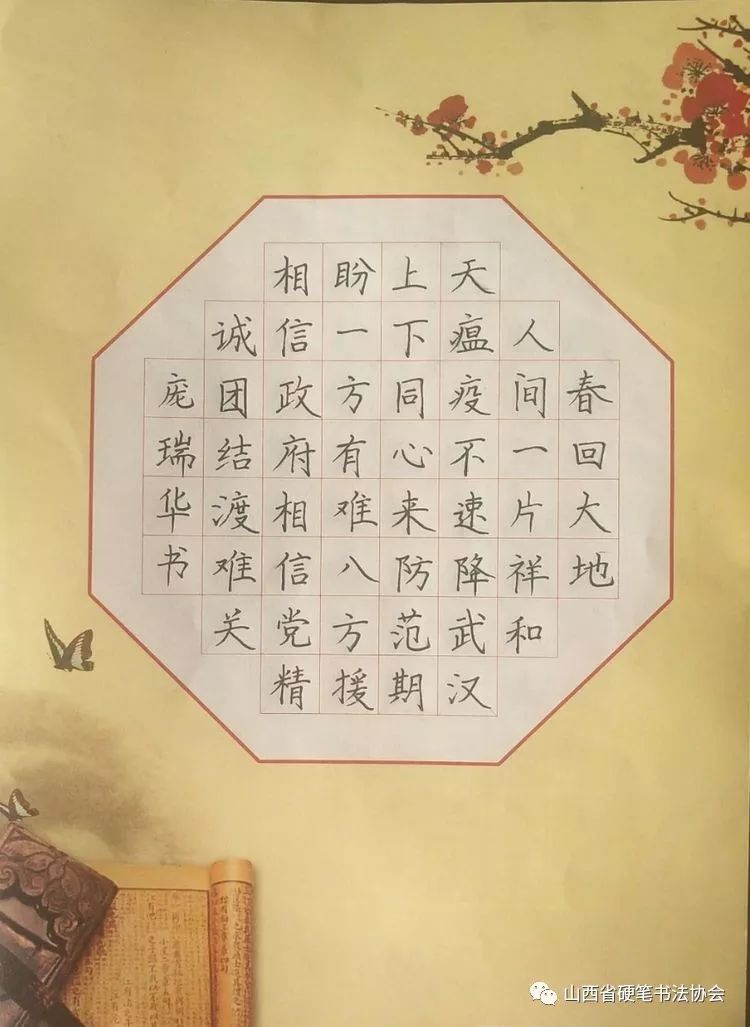 春回大地
人间一片祥和
天瘟疫不速降武汉
上下同心来防范期
盼一方有难八方援
相信政府相信党精
诚团结渡难关
庞瑞华书
山西省硬笔书法协会